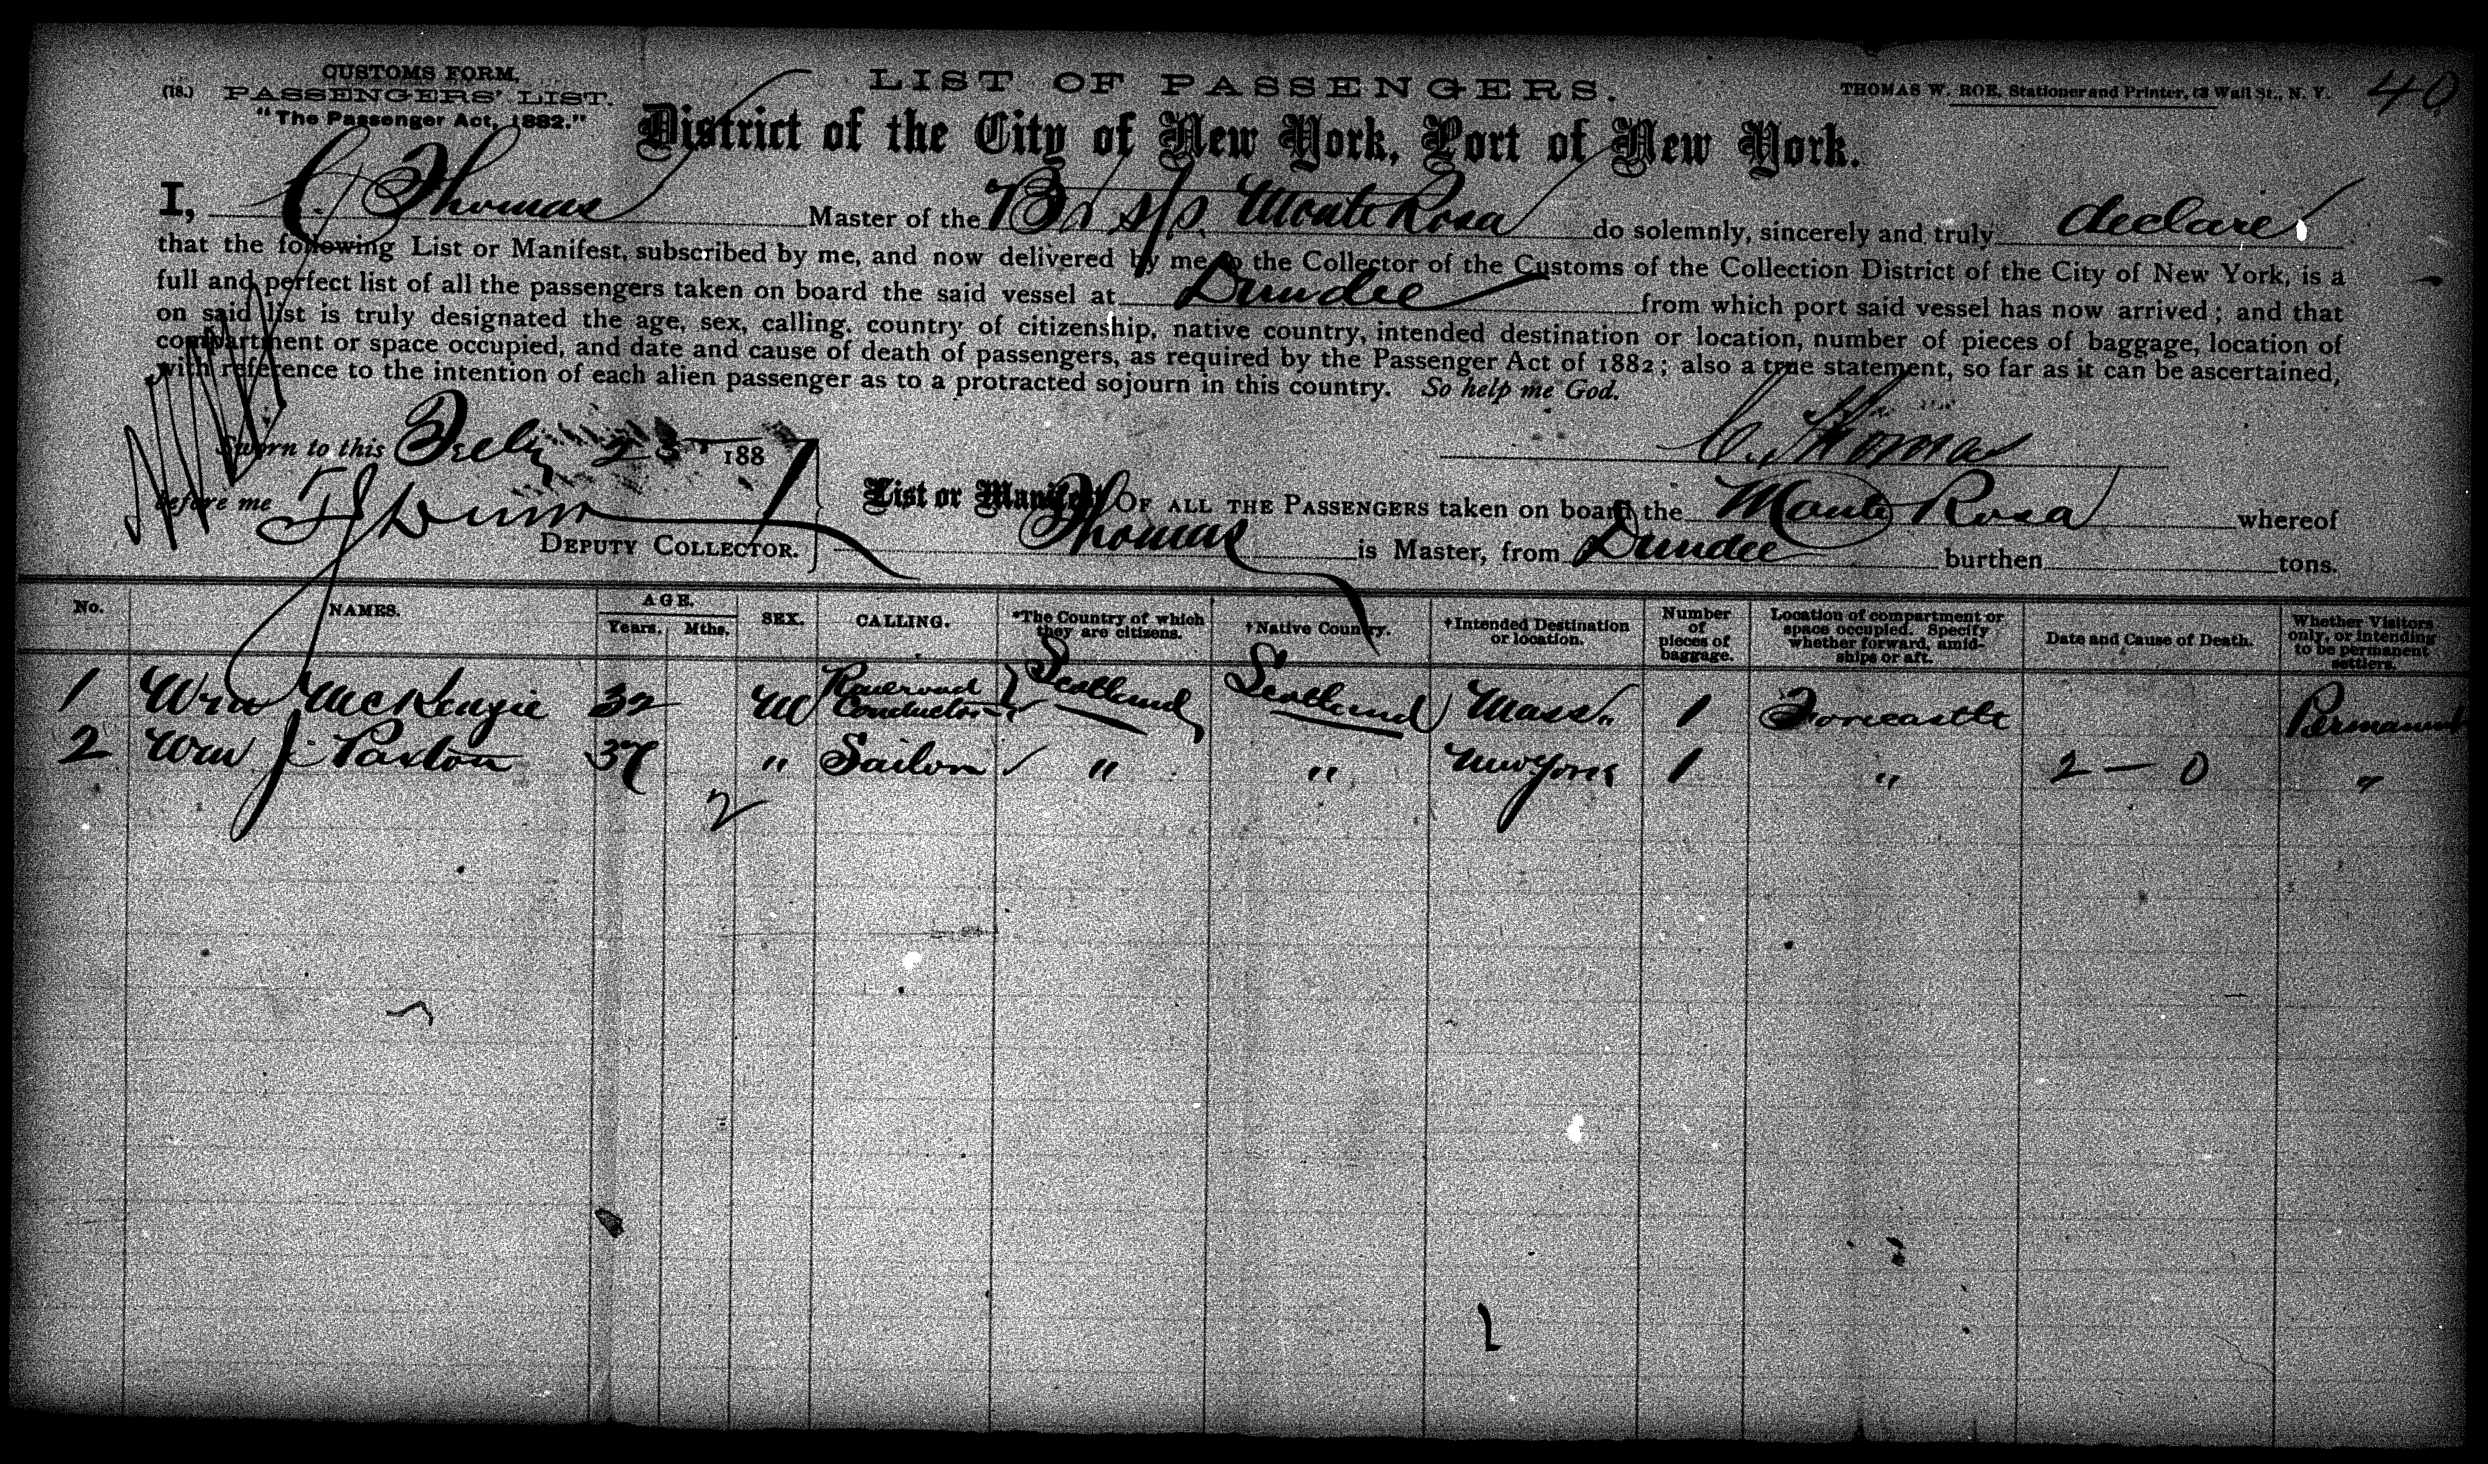 CUSTOMS FORM.
(18.) PASSENGERS' LIST.
"The Passenger Act, 1882."
LIST OF PASSENGERS.
THOMAS W. ROE, Stationer and Printer, Wall St., N. Y.
40
District of the City of New York, Port of New York.
I, C. Thomas Master of the Br s/s. Monte Rosa do solemnly, sincerely and truly declare
that the following List or Manifest, subscribed by me, and now delivered by me to the Collector of the Customs of the Collection District of the City of New York, is a
full and perfect list of all the passengers taken on board the said vessel at Dundee from which port said vessel has now arrived; and that
on said list is truly designated the age, sex, calling, country of citizenship, native country, intended destination or location, number of pieces of baggage, location of
compartment or space occupied, and date and cause of death of passengers, as required by the Passenger Act of 1882; also a true statement, so far as it can be ascertained,
with reference to the intention of each alien passenger as to a protracted sojourn in this country. So help me God.
C. Thomas
Sworn to this July 25 1887
before me Dunn
DEPUTY COLLECTOR.
List or Manifest OF ALL THE PASSENGERS taken on board the Monte Rosa whereof
Thomas is Master, from Dundee burthen tons.
No. NAMES. AGE. Years. Mths. SEX. CALLING. *The Country of which they are citizens. †Native Country. †Intended Destination or location. Number of pieces of baggage. Location of compartment or space occupied. Specify whether forward, amidships or aft. Date and Cause of Death. Whether Visitors only, or intending to be permanent settlers.
1 Wm McKenzie 32 M Railroad Conductor Scotland Scotland Mass. 1 Forecastle Permanent
2 Wm J. Paxton 37 " Sailor " " New York 1 " 2 — 0 "
2